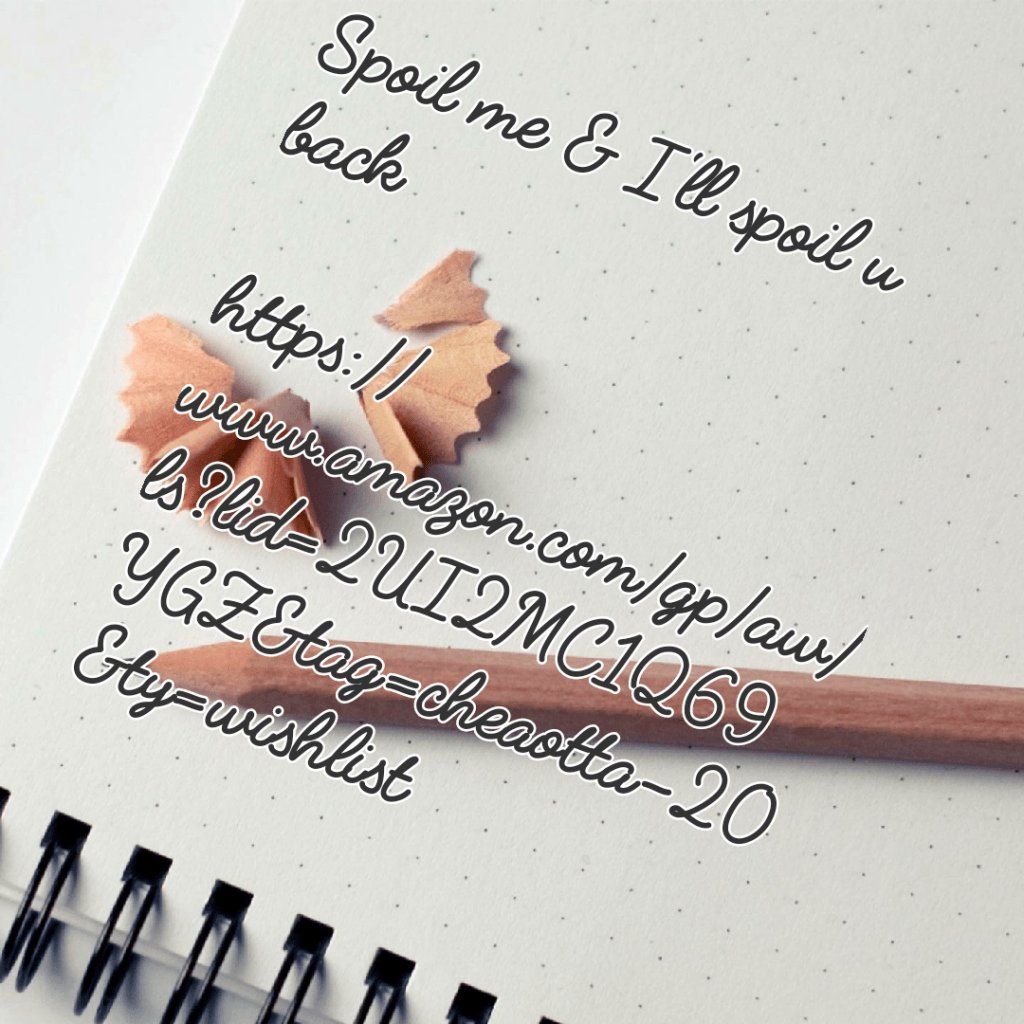 Spoil me & I'll spoil u
back
https://
www.amazon.com/gp/aw/
ls?lid=2UI2MC1Q69
YGZ&tag=cheaotta-20
&ty=wishlist